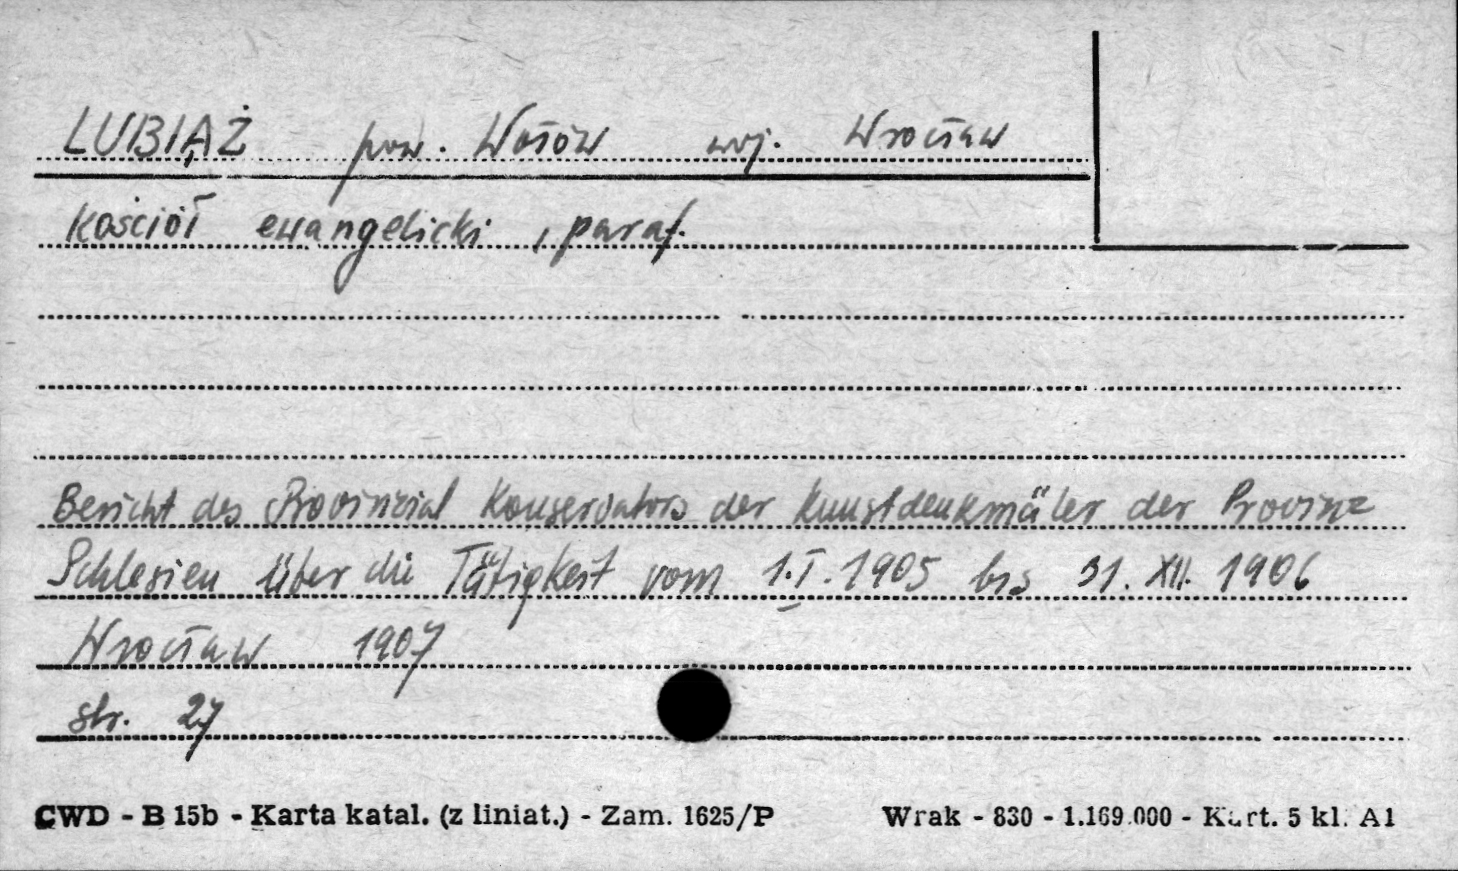 LUBIĄŻ pow. Wołów woj. Wrocław
Kościół ewangelicki, paraf.
Bericht des Provinzial Konservators der Kunstdenkmäler der Provinz
Schlesien über die Tätigkeit vom 1.I.1905 bis 31.XII.1906
Wrocław 1907
str. 27
CWD - B 15b - Karta katal. (z liniat.) - Zam. 1625/P Wrak - 830 - 1.169.000 - Kart. 5 kl. A1